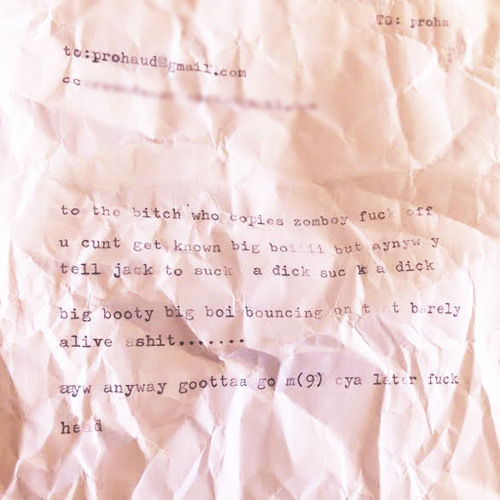 TO: proha
to:prohaud@gmail.com
cc
to the bitch who copies zomboy fuck off
u cunt get known big boiiii but aynyw y
tell jack to suck a dick suc k a dick
big booty big boi bouncing on t at barely
alive ashit.......
ayw anyway goottaa go m(9) cya later fuck
head